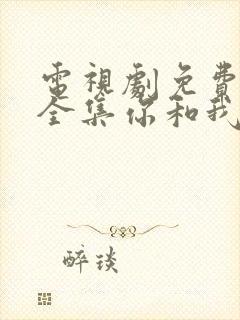 電視劇免費
全集你和我
醉琰